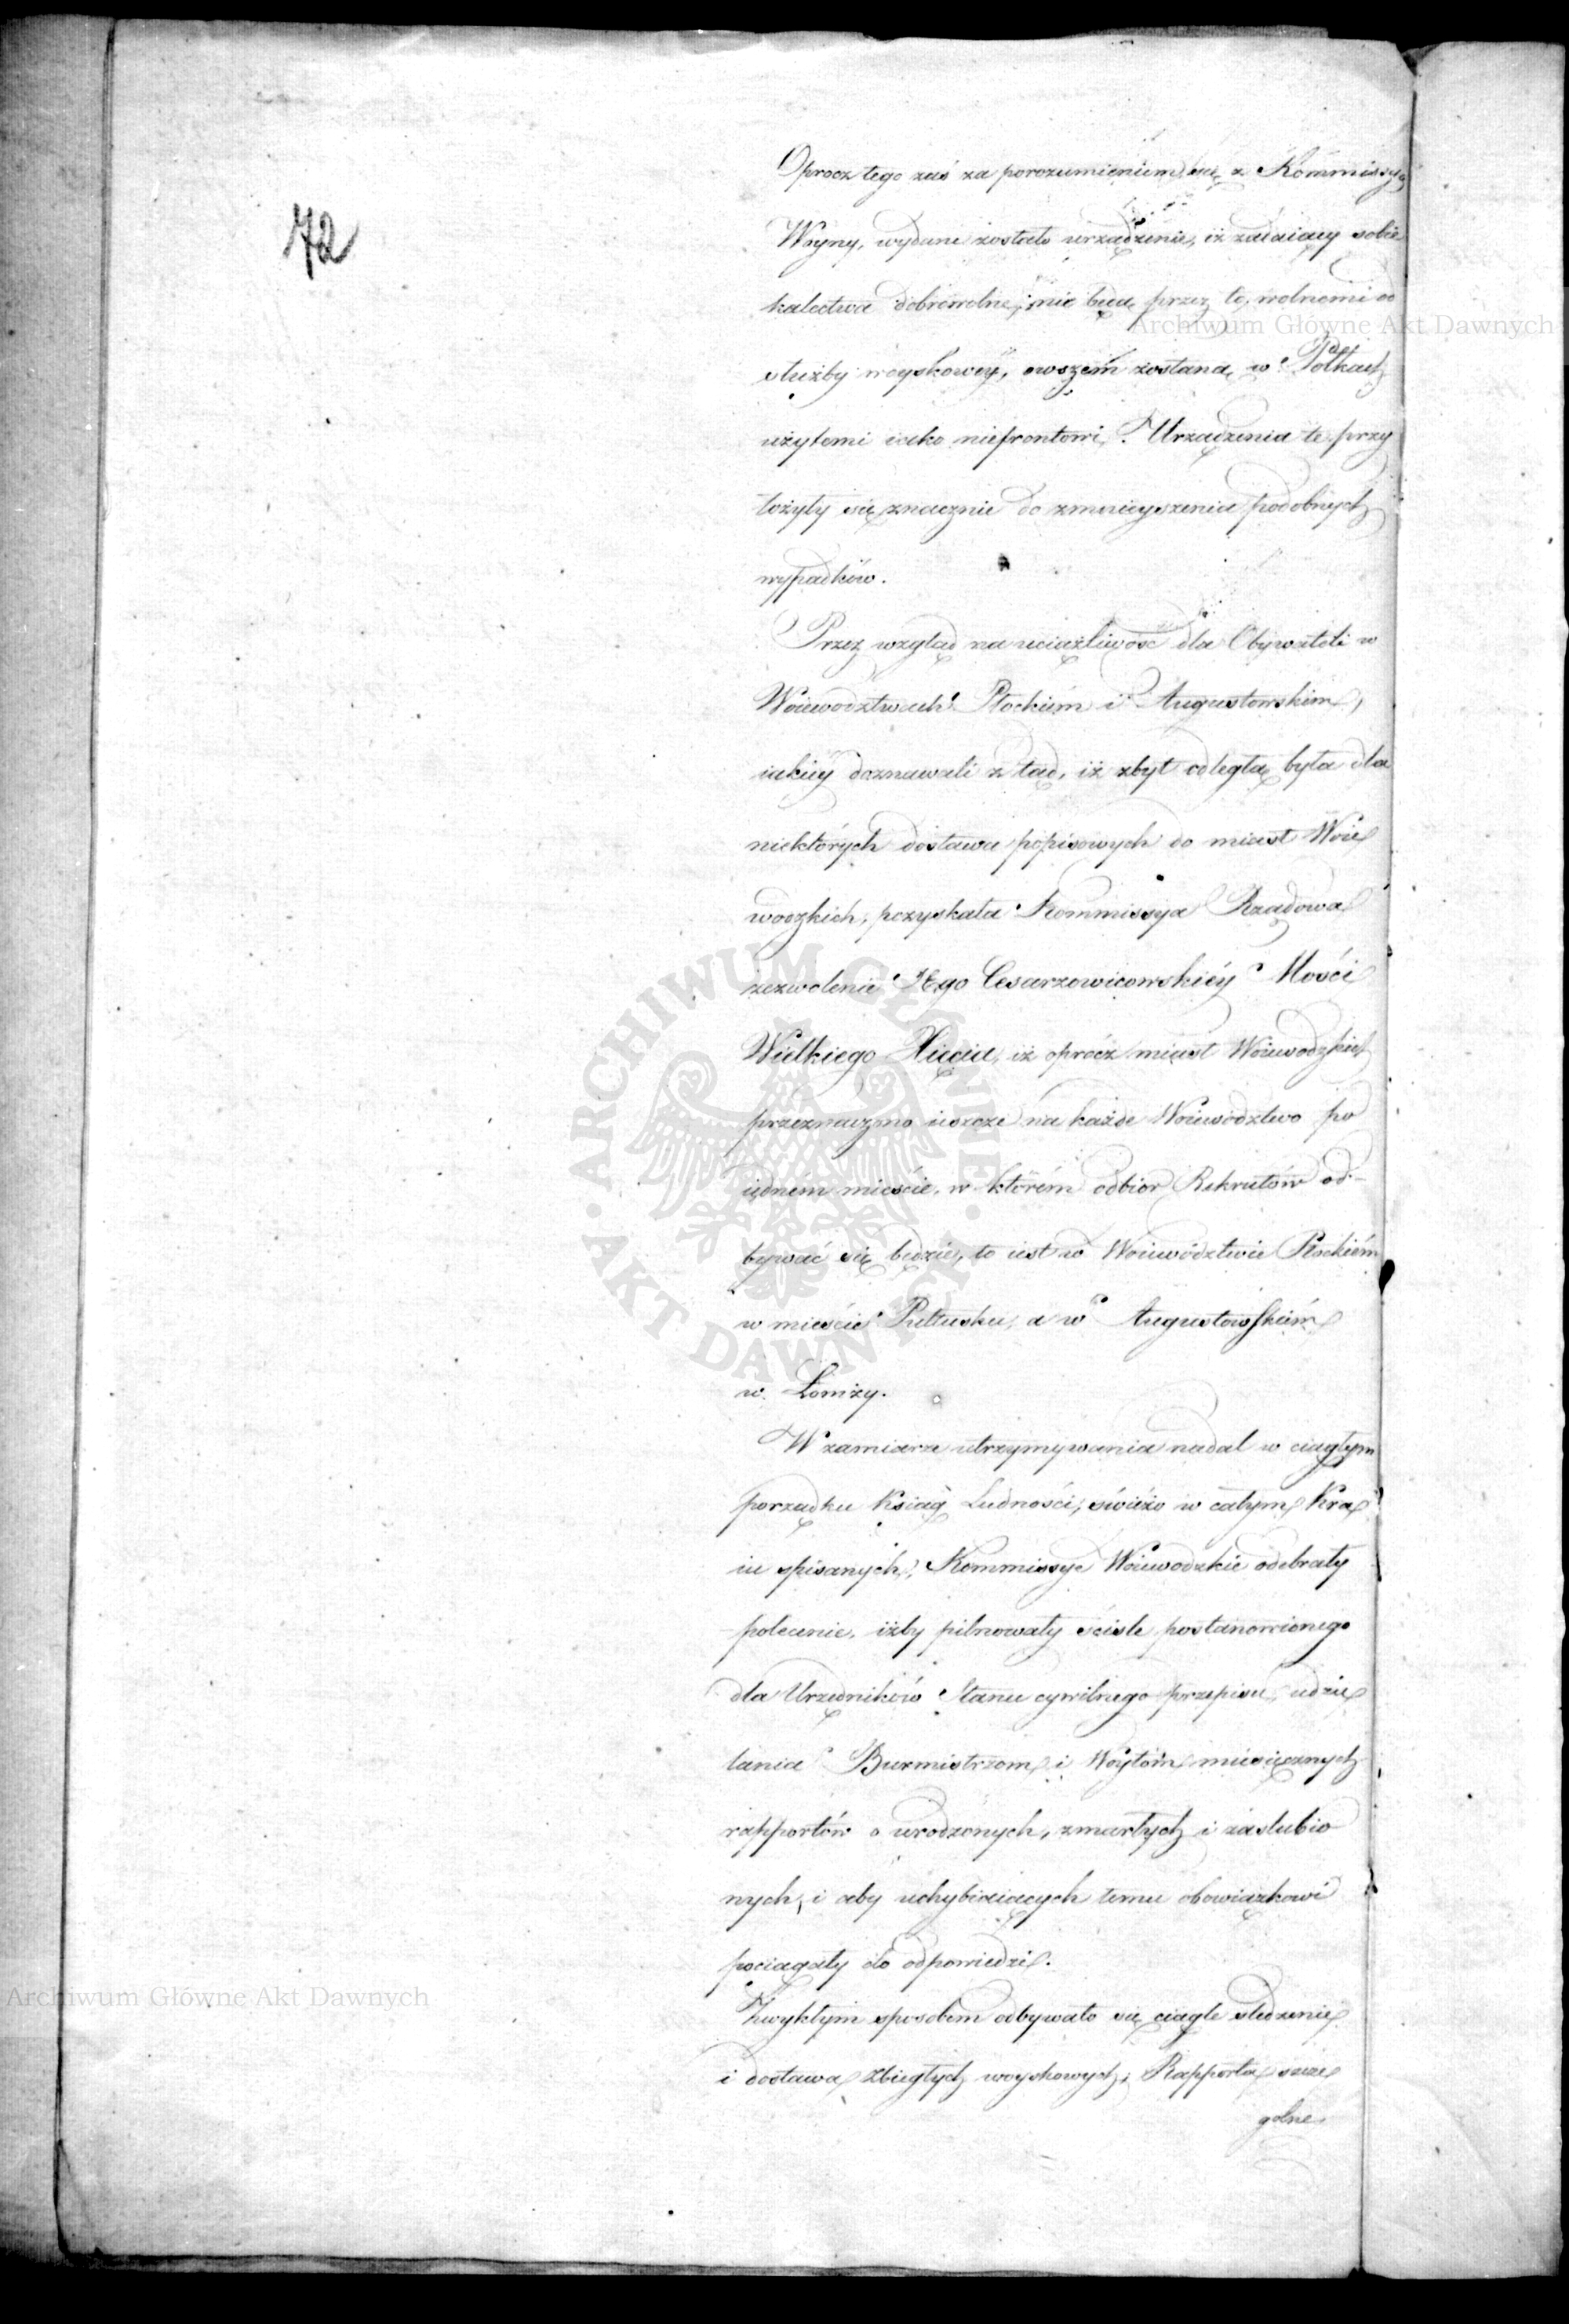 72
Oprocz tego zaś za porozumieniem się z Kommissyą
Woyny, wydane zostało urządzenie, iż zadaiący sobie
kalectwa dobrowolne, nie będą przez to wolnemi od
służby woyskowéy, owszem zostaną w Półkach
użytemi iako niefrontowi. Urządzenia te przy
łożyły się znacznie do zmnieyszenia podobnych
wypadków.
Przez wzgląd na uciążliwość dla Obywateli w
Woiewodztwach Płockiém i Augustowskim,
iakiéy doznawali z tąd, iż zbyt odległą była dla
niektórych dostawa popisowych do miast Woie
wodzkich, pozyskała Kommissya Rządowa
zezwolenie Jego Cesarzowicowskiéy Mości
Wielkiego Xięcia, iż oprócz miast Woiewodzkich
przeznaczono ieszcze na każde Woiewództwo po
iedném mieście, w którém odbior Rekrutów od-
bywać się będzie, to iest w Woiewództwie Płockiém
w mieście Pułtusku, a w Augustowskiém
w Łomży.
W zamiarze utrzymywania nadal w ciągłym
porządku Ksiąg Ludności, świéżo w całym Kra
iu spisanych, Kommissye Woiewodzkie odebrały
polecenie, iżby pilnowały ściśle postanowionego
dla Urzędników Stanu cywilnego przepisu, udzie
lania Burmistrzom i Woytóm miesięcznych
rapportów o urodzonych, zmarłych i zaślubio
nych, i aby uchybiaiących temu obowiązkowi
pociągały do odpowiedzi.
Zwykłym sposobem odbywało się ciągle śledzenie
i dostawa zbiegłych woyskowych; Rapporta szcze
gólne
Archiwum Główne Akt Dawnych
ARCHIWUM GŁÓWNE AKT DAWNYCH
Archiwum Główne Akt Dawnych